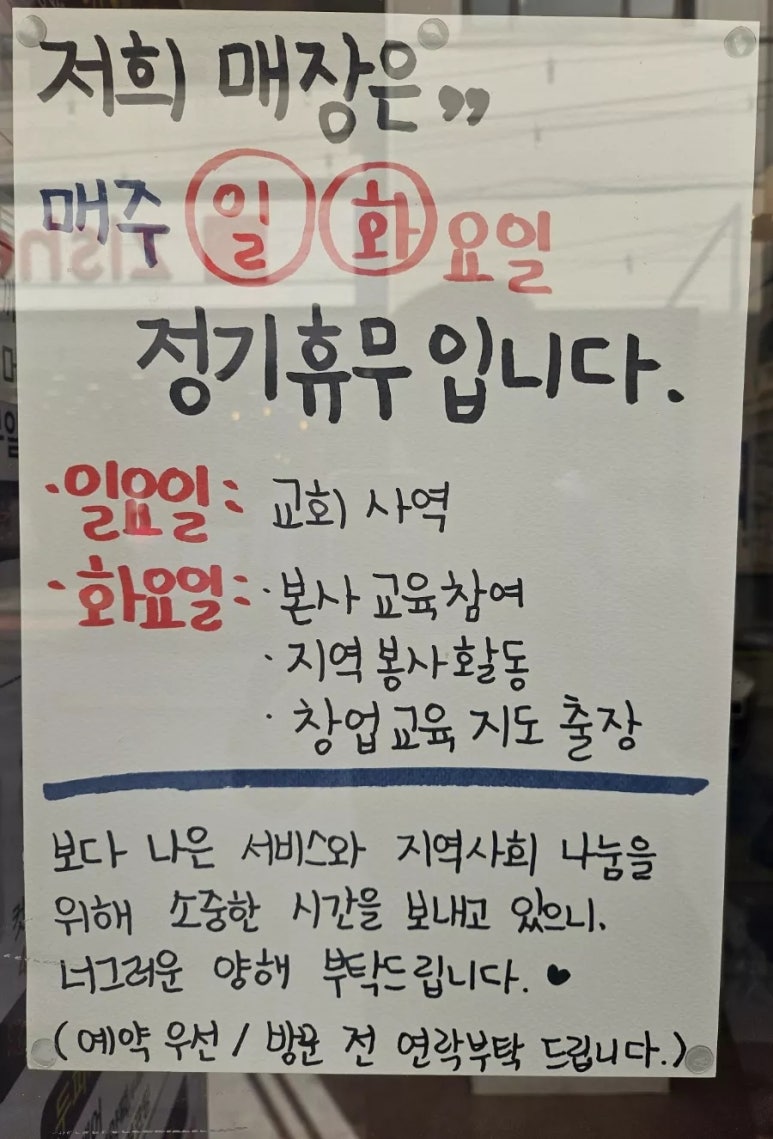 저희 매장은,,
매주 일 화요일
정기휴무 입니다.
·일요일: 교회 사역
·화요일: ·본사 교육참여
· 지역 봉사활동
· 창업교육 지도 출장
보다 나은 서비스와 지역사회 나눔을
위해 소중한 시간을 보내고 있으니,
너그러운 양해 부탁드립니다. ♥
(예약 우선 / 방문 전 연락부탁 드립니다.)